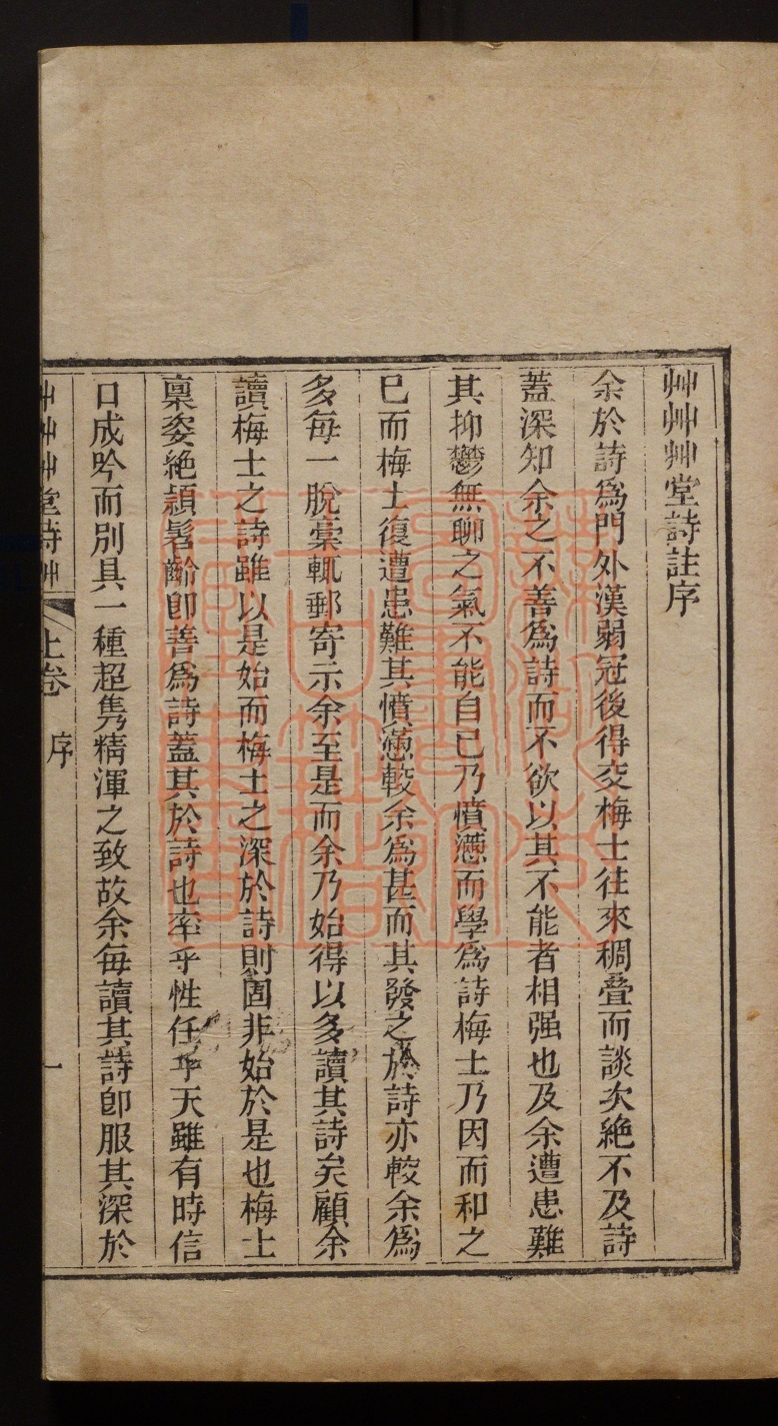 艸艸艸堂詩註序
余於詩爲門外漢弱冠後得交梅士往來稠疊而談次絶不及詩
蓋深知余之不善爲詩而不欲以其不能者相强也及余遭患難
其抑鬱無聊之氣不能自已乃憤懣而學爲詩梅士乃因而和之
已而梅士復遭患難其憤懣較余爲甚而其發之於詩亦較余爲
多每一脫稾輒郵寄示余至是而余乃始得以多讀其詩矣顧余
讀梅士之詩雖以是始而梅士之深於詩則固非始於是也梅士
稟姿絶頴髫齡卽善爲詩蓋其於詩也率乎性任乎天雖有時信
口成吟而別具一種超雋精渾之致故余每讀其詩卽服其深於
艸艸艸堂詩艸 上卷 序 一